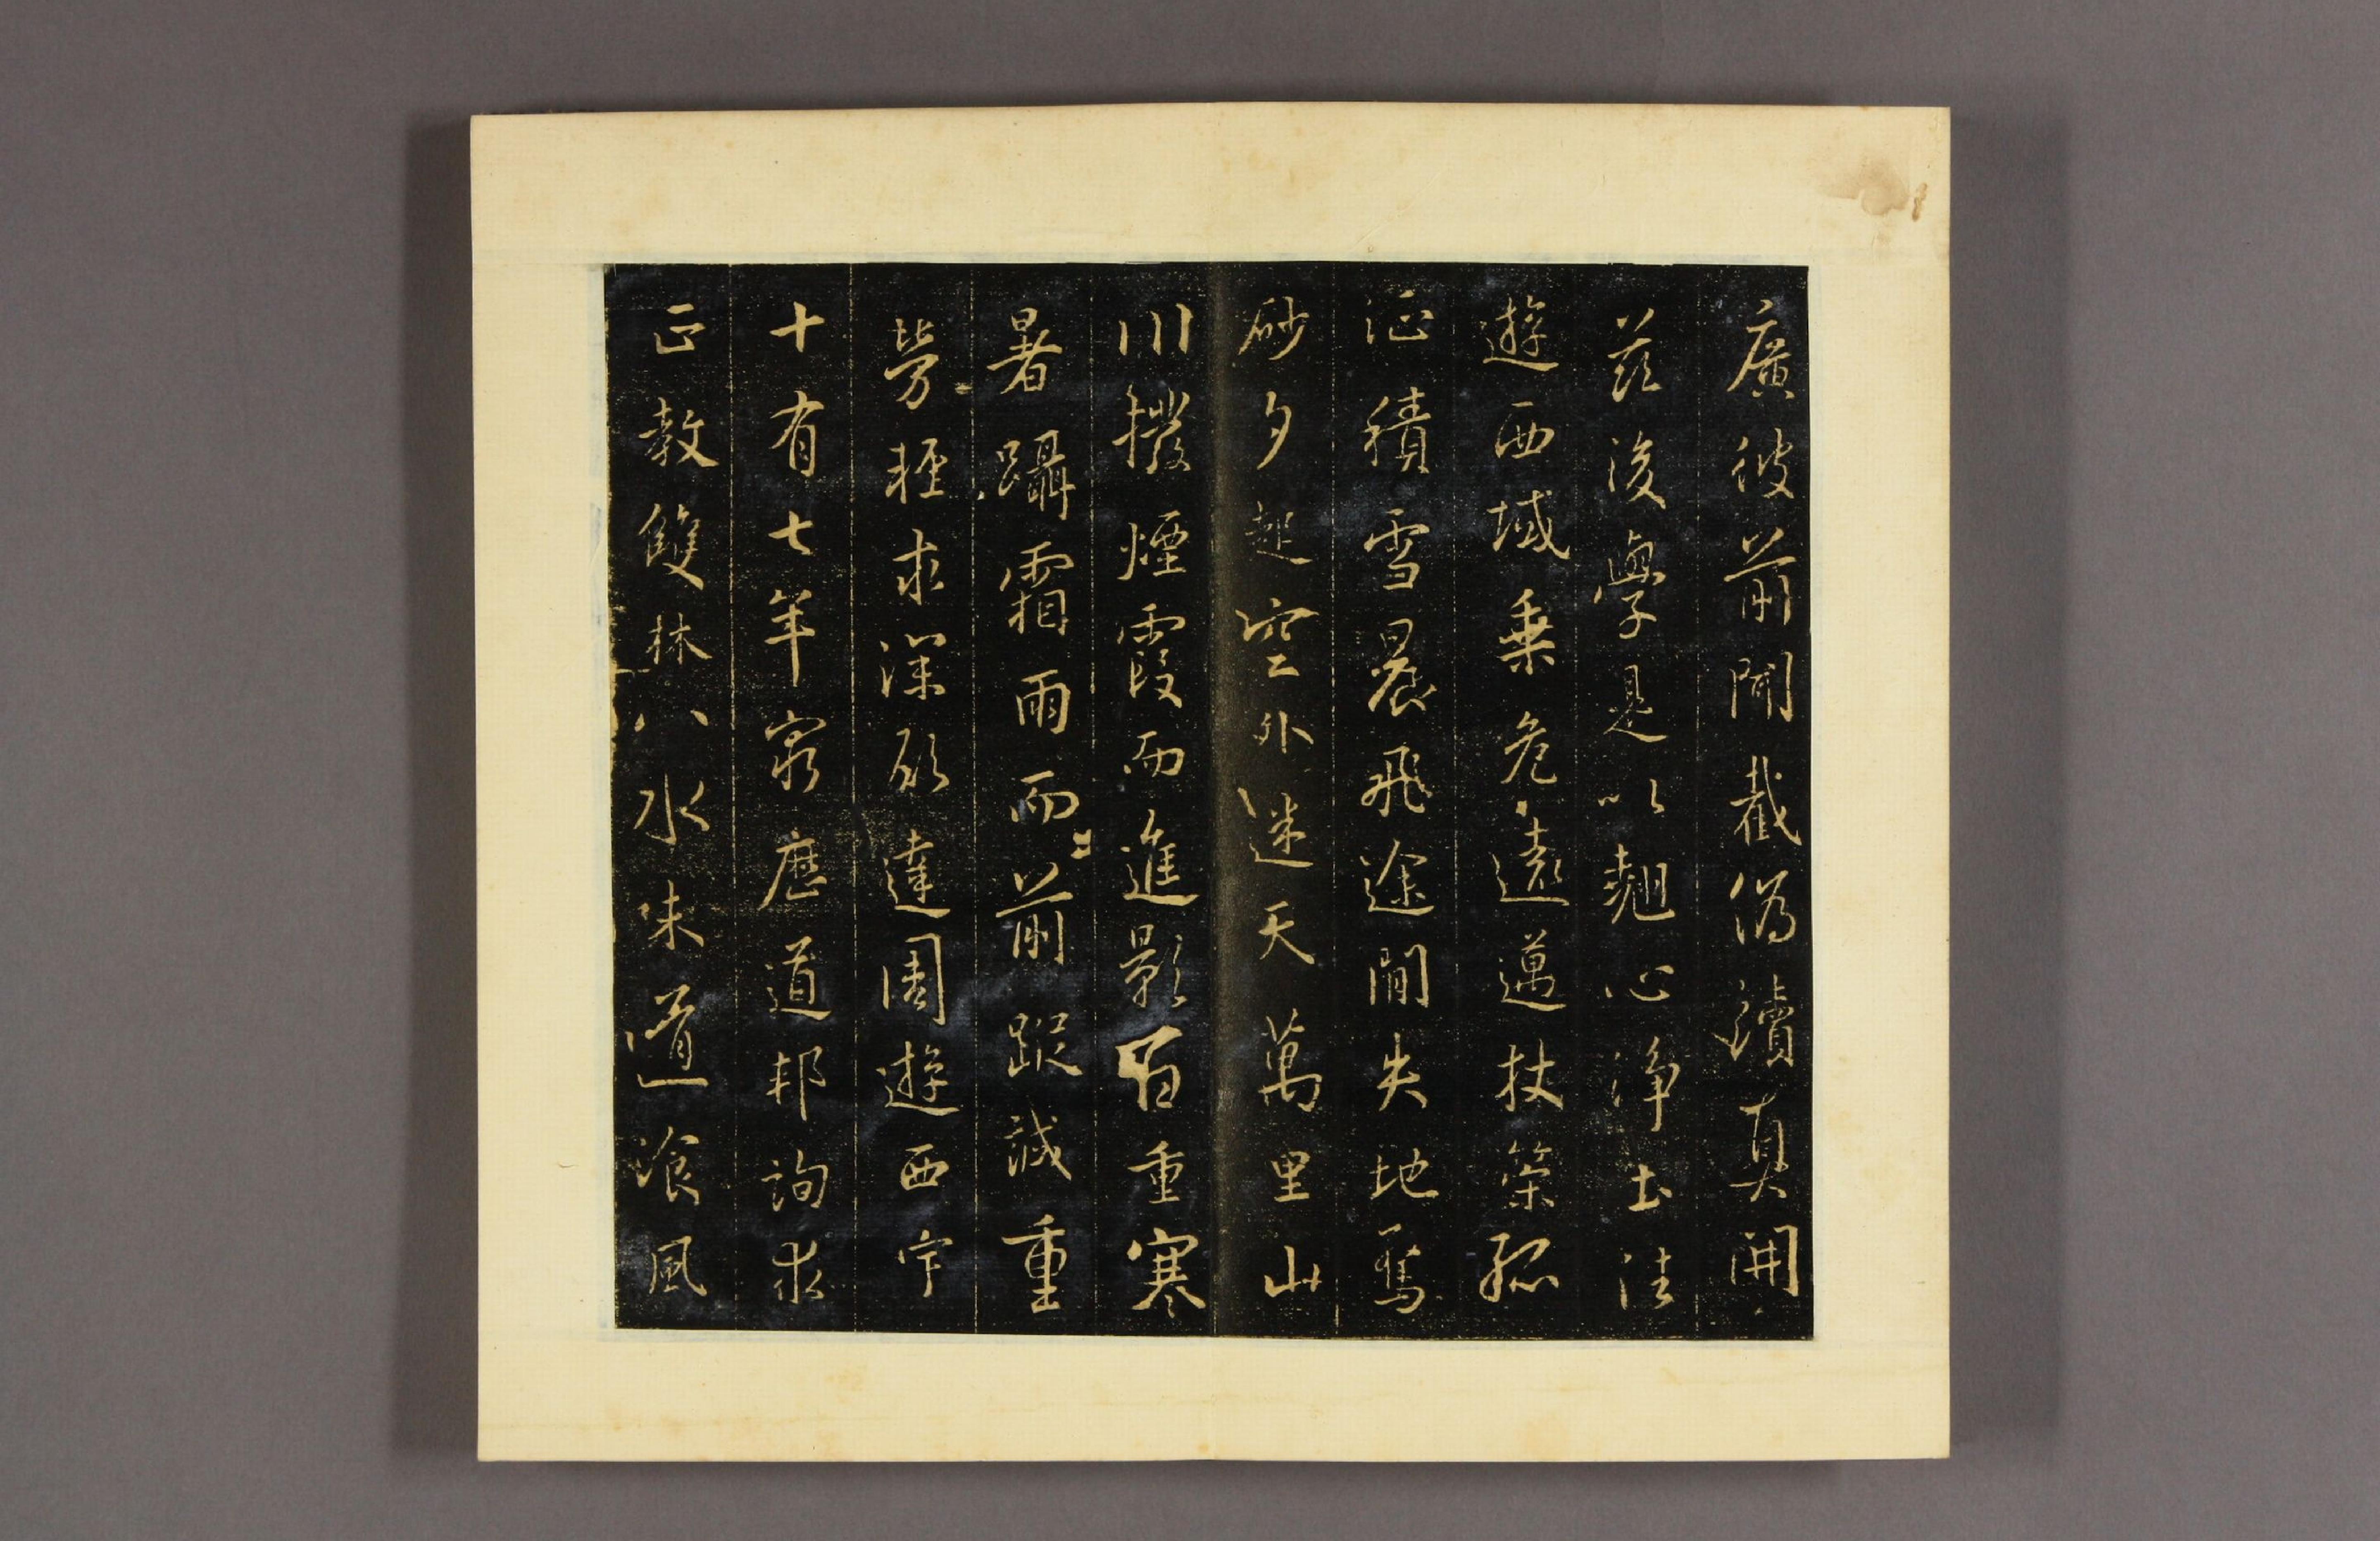 廣彼前聞截偽續真開
茲後學是以翹心淨土法
遊西域乗危遠邁杖策孤
征積雪晨飛途間失地驚
砂夕起空外迷天萬里山
川撥煙霞而進影百重寒
暑躡霜雨而前蹤誠重
勞輕求深願達周遊西宇
十有七年窮歷道邦詢求
正教雙林八水味道飡風